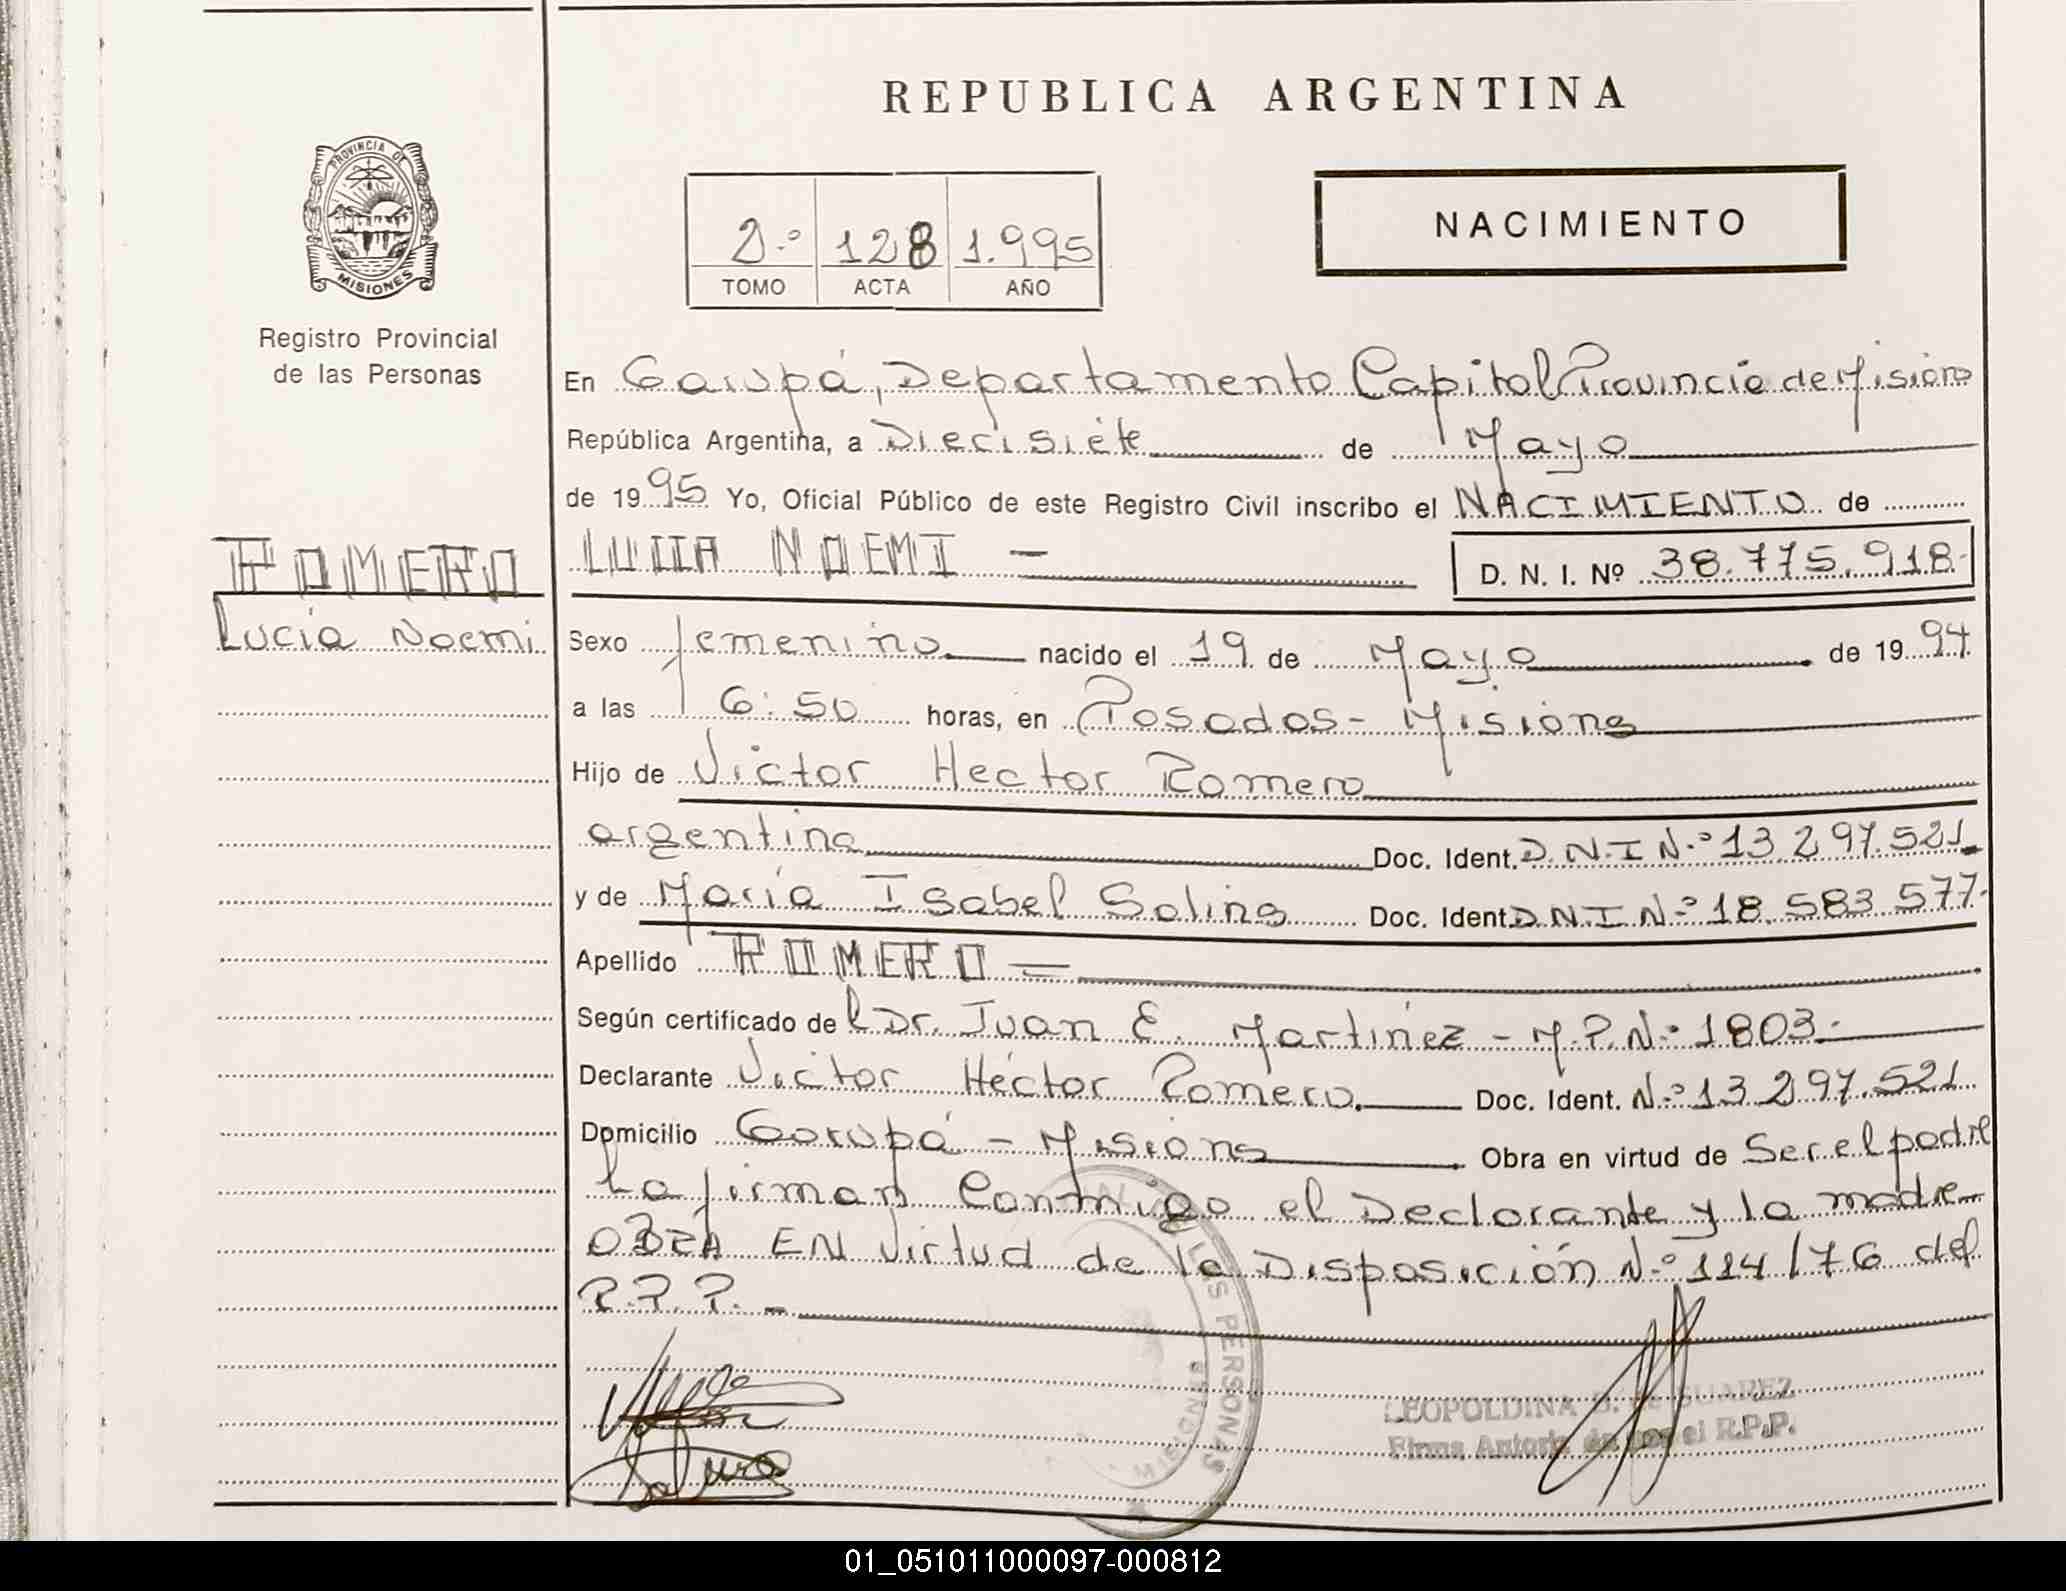 REPUBLICA ARGENTINA
PROVINCIA DE
MISIONES
Registro Provincial
de las Personas
2.º 128 1.995
TOMO ACTA AÑO
NACIMIENTO
En Garupá, Departamento Capital Provincia de Misiones
República Argentina, a Diecisiete de Mayo
de 1995 Yo, Oficial Público de este Registro Civil inscribo el NACIMIENTO de
ROMERO
Lucía Noemi
LUCIA NOEMI —
D. N. I. Nº 38.775.918-
Sexo femenino nacido el 19 de Mayo de 1994
a las 16:50 horas, en Posadas - Misiones
Hijo de Victor Hector Romero
argentina Doc. Ident. D.N.I N.º 13.297.521
y de María Isabel Salina Doc. Ident. D N I N.º 18.583.577-
Apellido ROMERO =
Según certificado del Dr. Juan E. Martínez - M.P.N.º 1803.-
Declarante Victor Héctor Romero. Doc. Ident. N.º 13.297.521
Domicilio Garupá - Misiones Obra en virtud de Ser el padre
La firman Conmigo el Declarante y la madre
OBRA EN Virtud de la Disposición N.º 114/76 del
R.P.P. -
LAS PERSONAS
MISIONES
LEOPOLDINA de SUAREZ
Firma Autoriz. el R.P.P.
01_051011000097-000812